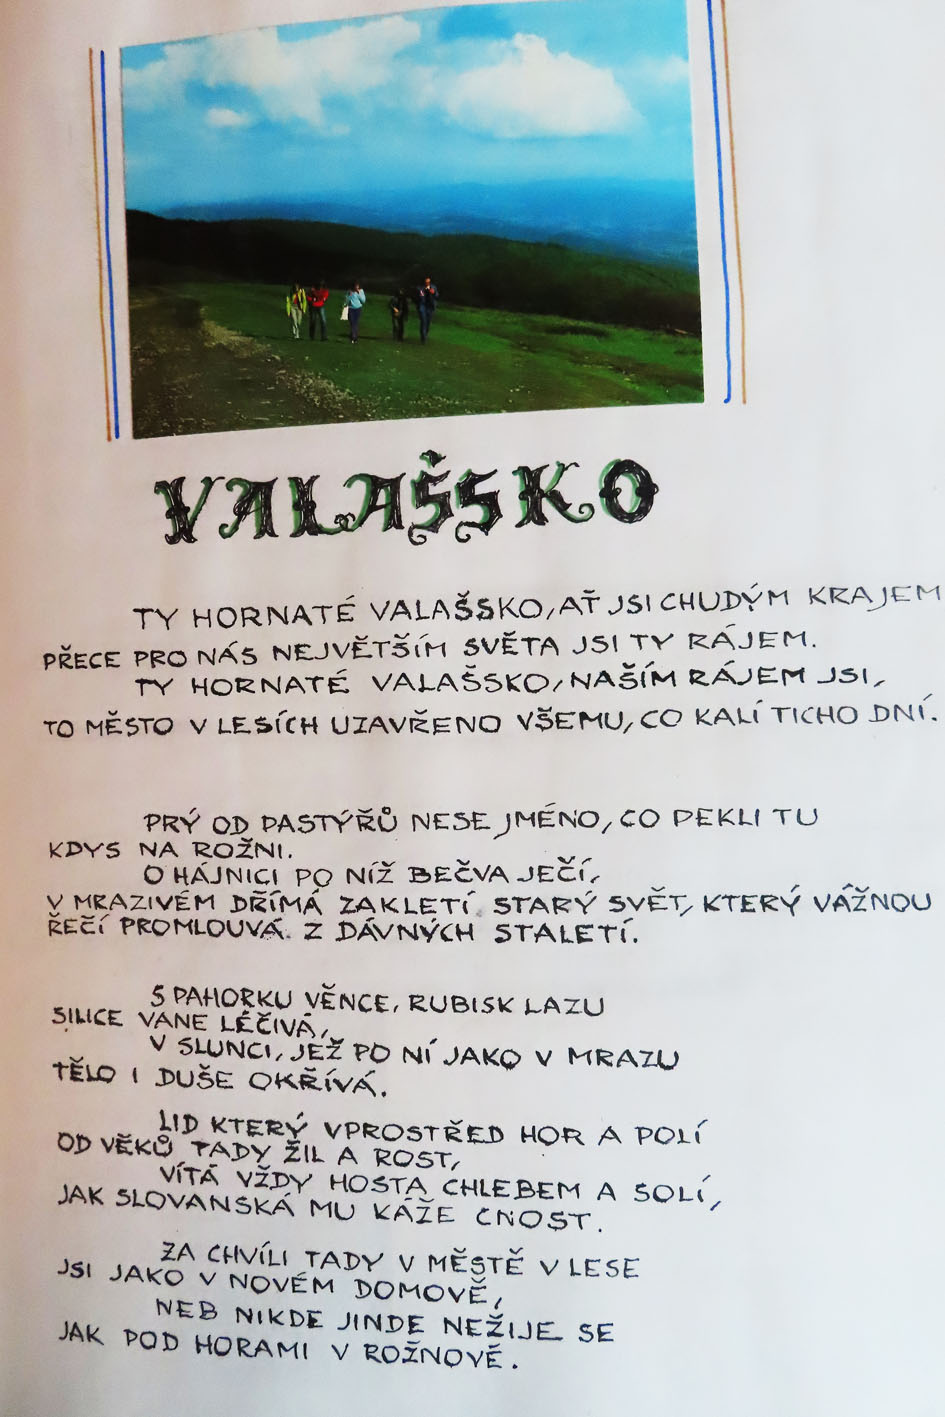 VALAŠSKO
TY HORNATÉ VALAŠSKO, AŤ JSI CHUDÝM KRAJEM
PŘECE PRO NÁS NEJVĚTŠÍM SVĚTA JSI TY RÁJEM.
TY HORNATÉ VALAŠSKO, NAŠÍM RÁJEM JSI,
TO MĚSTO V LESÍCH UZAVŘENO VŠEMU, CO KALÍ TICHO DNÍ.
PRÝ OD PASTÝŘŮ NESE JMÉNO, CO PEKLI TU
KDYS NA ROŽNI.
O HÁJNICI PO NÍŽ BEČVA JEČÍ,
V MRAZIVÉM DŘÍMÁ ZAKLETÍ STARÝ SVĚT, KTERÝ VÁŽNOU
ŘEČÍ PROMLOUVÁ Z DÁVNÝCH STALETÍ.
S PAHORKU VĚNCE, RUBISK LAZU
SILICE VANE LÉČIVÁ,
V SLUNCI, JEŽ PO NÍ JAKO V MRAZU
TĚLO I DUŠE OKŘÍVÁ.
LID KTERÝ VPROSTŘED HOR A POLÍ
OD VĚKŮ TADY ŽIL A ROST,
VÍTÁ VŽDY HOSTA CHLEBEM A SOLÍ,
JAK SLOVANSKÁ MU KÁŽE CNOST.
ZA CHVÍLI TADY V MĚSTĚ V LESE
JSI JAKO V NOVÉM DOMOVĚ,
NEB NIKDE JINDE NEŽIJE SE
JAK POD HORAMI V ROŽNOVĚ.